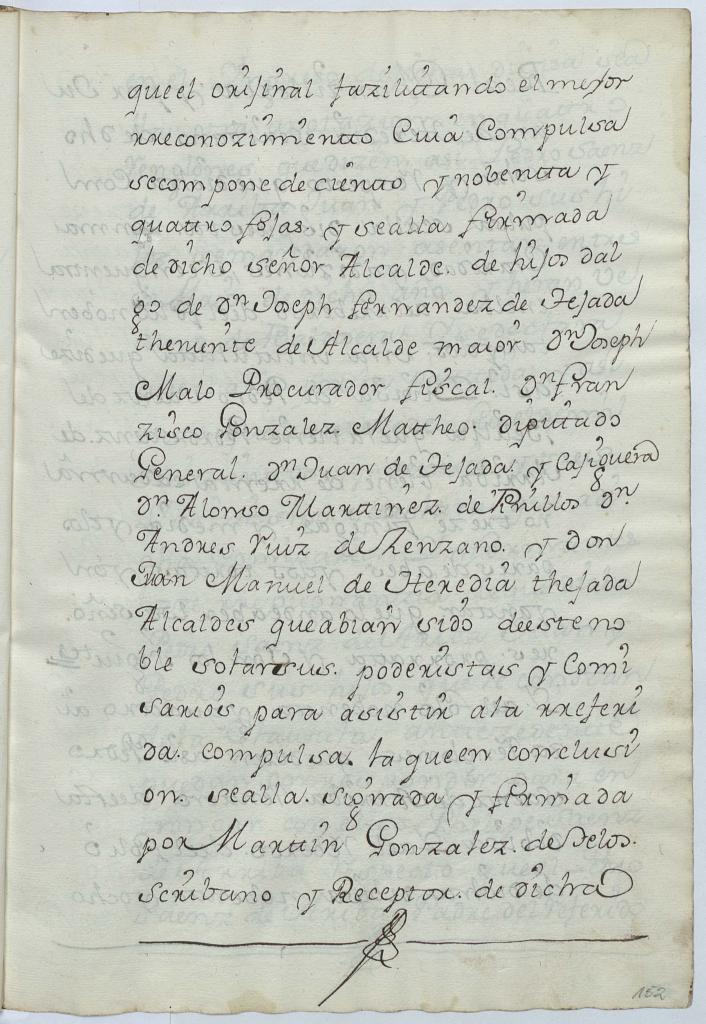 queel orijinal fazilittando el mejor
rreconozimientto Cuia Compulsa
secompone de cientto y nobentta y
quattro fojas. y sealla firmada
de dicho señor Alcalde. de hijos dal
go de Dn Joseph fernandez de Tejada
theniente de Alcalde maior Dn Joseph
Malo Procurador fiscal. Dn fran
zisco Gonzalez. Mattheo. diputtado
General. Dn Juan de Tejada y Casiguera
Dn. Alonso Marttinez. de Pinillos Dn.
Andres ruiz de Lenzano. y Don
Juan Manuel de Heredia thejada
Alcaldes queabian sido deesteno
ble solar sus. poderistas y Comi
sarios para asistir ala rreferi
da. compulsa. la queen conclusi
on. sealla. signada y firmada
por Marttin Gonzalez. de
Scribano y Receptor. de dicha
152